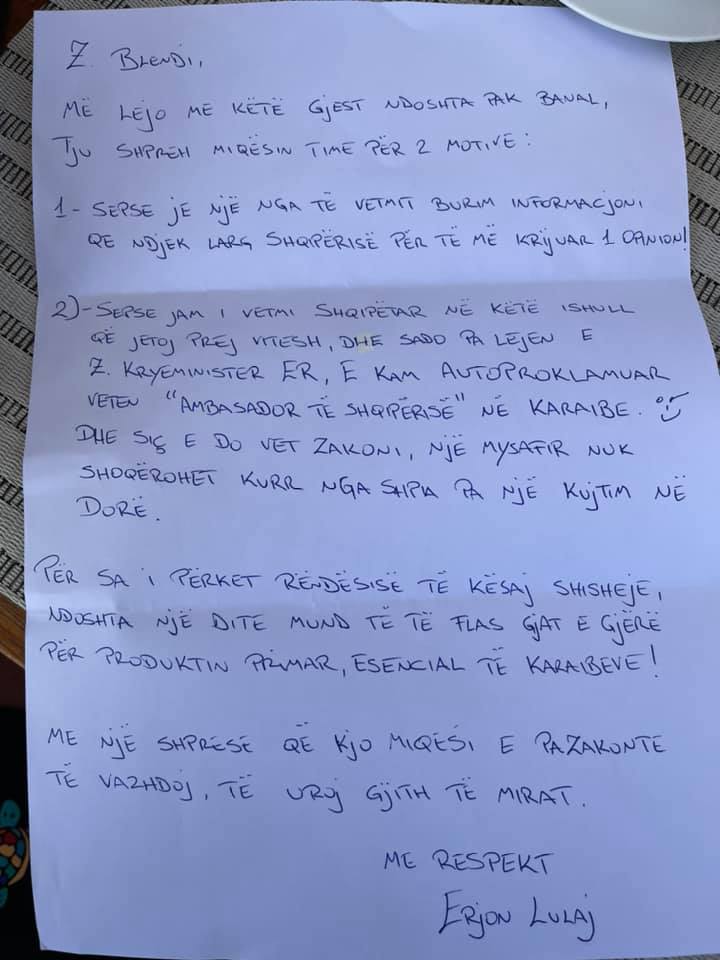 Z. BLENDI,
MË LEJO ME KËTË GJEST NDOSHTA PAK BANAL,
TJU SHPREH MIQËSIN TIME PËR 2 MOTIVE:
1- SEPSE JE NJË NGA TË VETMIT BURIM INFORMACJONI
QE NDJEK LARG SHQPËRISË PËR TË MË KRIJUAR 1 OPINION!
2)- SEPSE JAM I VETMI SHQIPËTAR NË KËTË ISHULL
QË JETOJ PREJ VITESH, DHE SADO PA LEJEN E
Z. KRYEMINISTER ER, E KAM AUTOPROKLAMUAR
VETEN "AMBASADOR TË SHQIPËRISË" NË KARAIBE.
DHE SIÇ E DO VET ZAKONI, NJË MYSAFIR NUK
SHOQËROHET KURR NGA SHPIA PA NJË KUJTIM NË
DORË.
PËR SA I PËRKET RËNDËSISË TË KËSAJ SHISHEJE,
NDOSHTA NJË DITE MUND TË TË FLAS GJAT E GJËRË
PËR PRODUKTIN PRIMAR, ESENCIAL TË KARAIBEVE!
ME NJË SHPRESË QË KJO MIQËSI E PAZAKONTE
TË VAZHDOJ, TË UROJ GJITH TË MIRAT.
ME RESPEKT
ERJON LULAJ